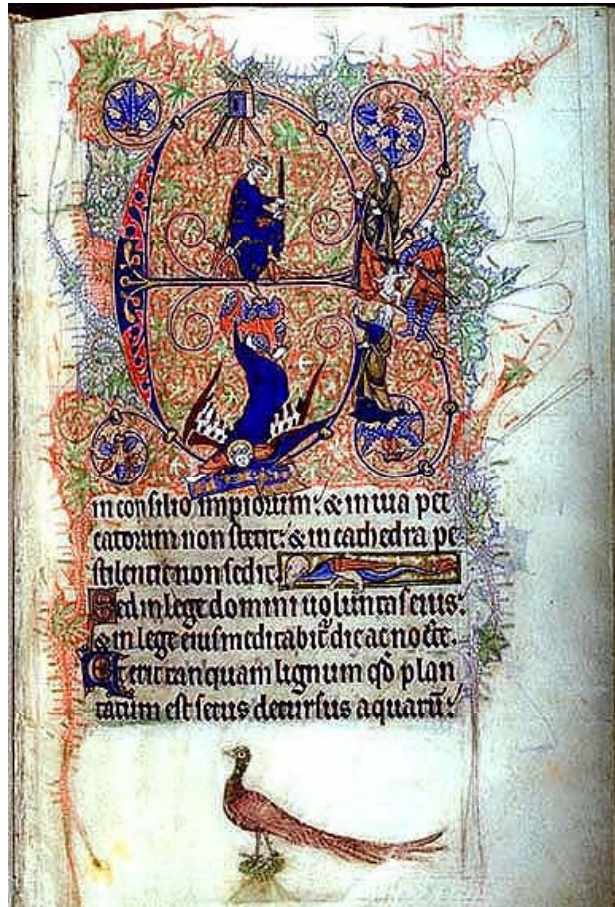 in consilio impiorum: & in uia pec
catorum non stetit: & in cathedra pe
stilencie non sedit.
Sed in lege domini uoluntas eius:
& in lege eius meditabit̄ die ac nocte.
Et erit tanquam lignum qd̄ plan
tatum est secus decursus aquarū: